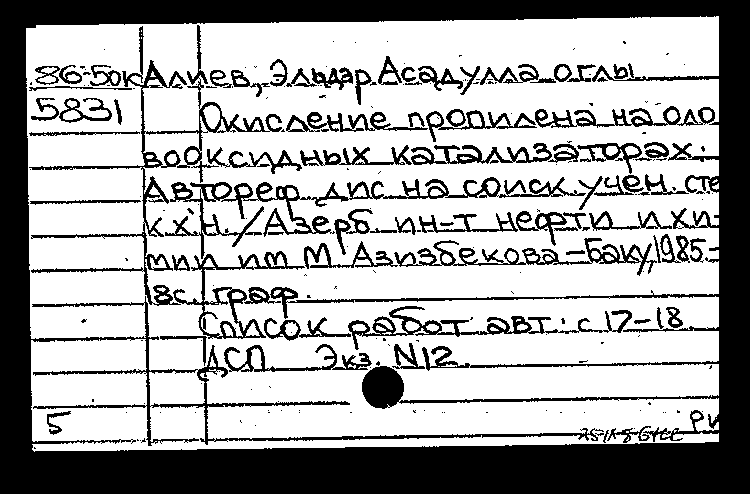 86-50к Алиев, Эльдар Асадулла оглы
5831 Окисление пропилена на оло
вооксидных катализаторах:
Автореф дис на соиск учен. сте
к х н. /Азерб. ин-т нефти и хи-
мии им М Азизбекова -Баку, 1985-
18с. граф.
Список работ авт: с 17-18.
ДСП. Экз. N12.
5